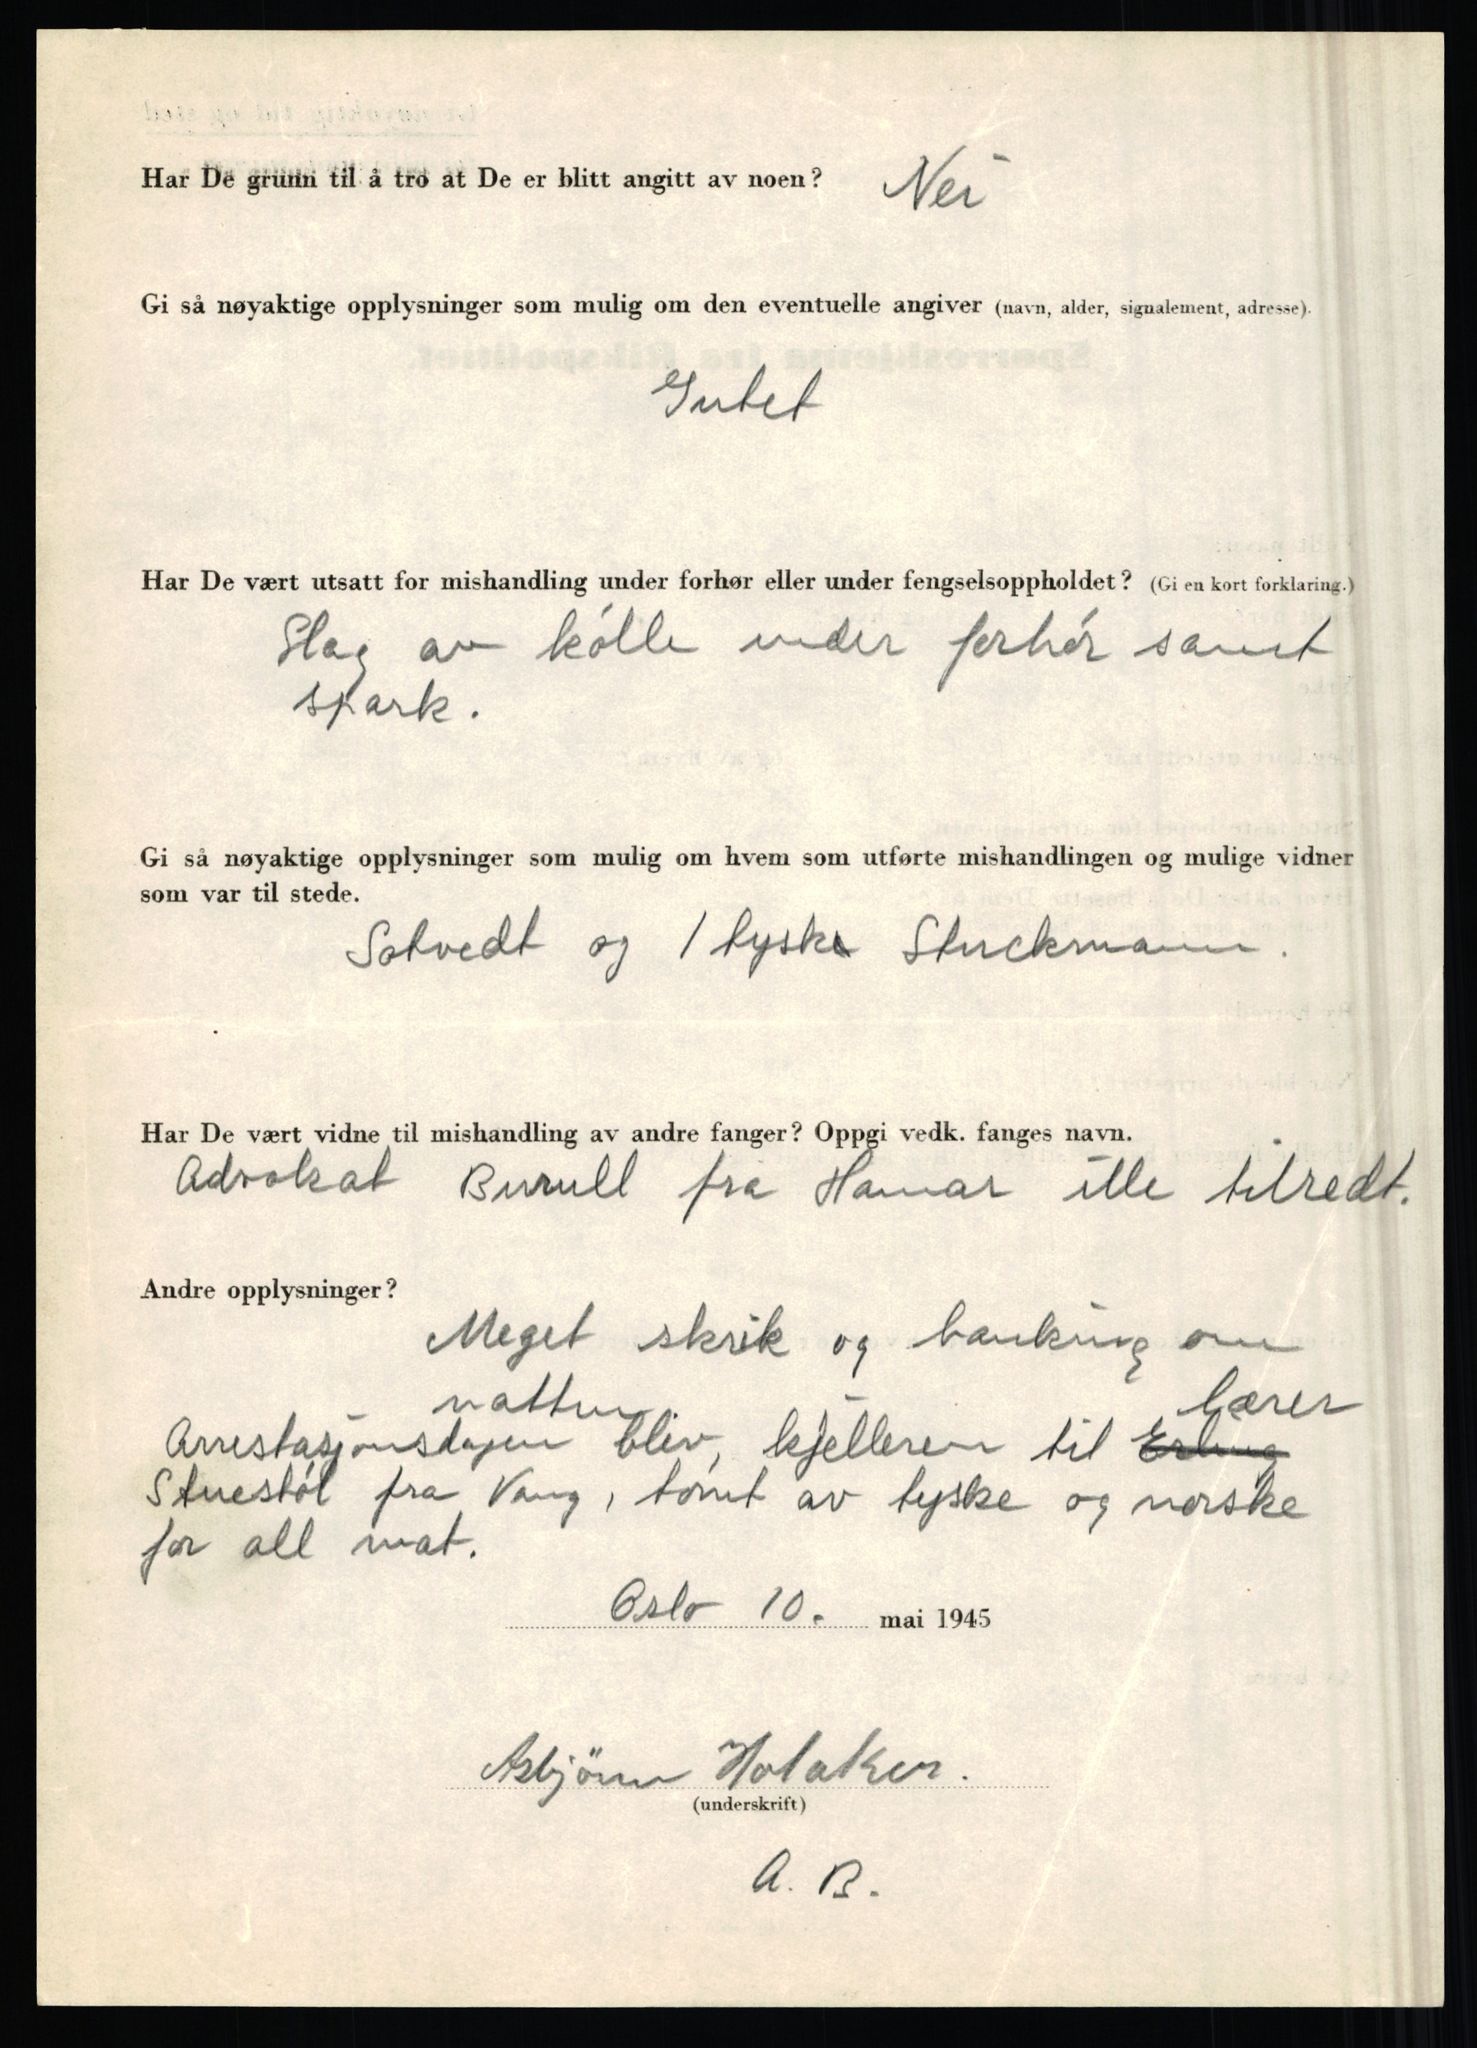 Har De grunn til å tro at De er blitt angitt av noen? Nei
Gi så nøyaktige opplysninger som mulig om den eventuelle angiver (navn, alder, signalement, adresse).
Intet
Har De vært utsatt for mishandling under forhør eller under fengselsoppholdet? (Gi en kort forklaring.)
Slag av kólle under forhór samt
spark.
Gi så nøyaktige opplysninger som mulig om hvem som utførte mishandlingen og mulige vidner
som var til stede.
Sotvedt og 1 tysk Stuckmann.
Har De vært vidne til mishandling av andre fanger? Oppgi vedk. fanges navn.
Advokat Burull fra Hamar ille tilredt.
Andre opplysninger?
Meget skrik og banking om
natten
lærer
Arrestasjonsdagen blev, kjelleren til Erling
Stuestól fra Vang, tómt av tyske og norske
for all mat.
Oslo 10. mai 1945
Asbjörn Holaker.
(underskrift)
A. B.